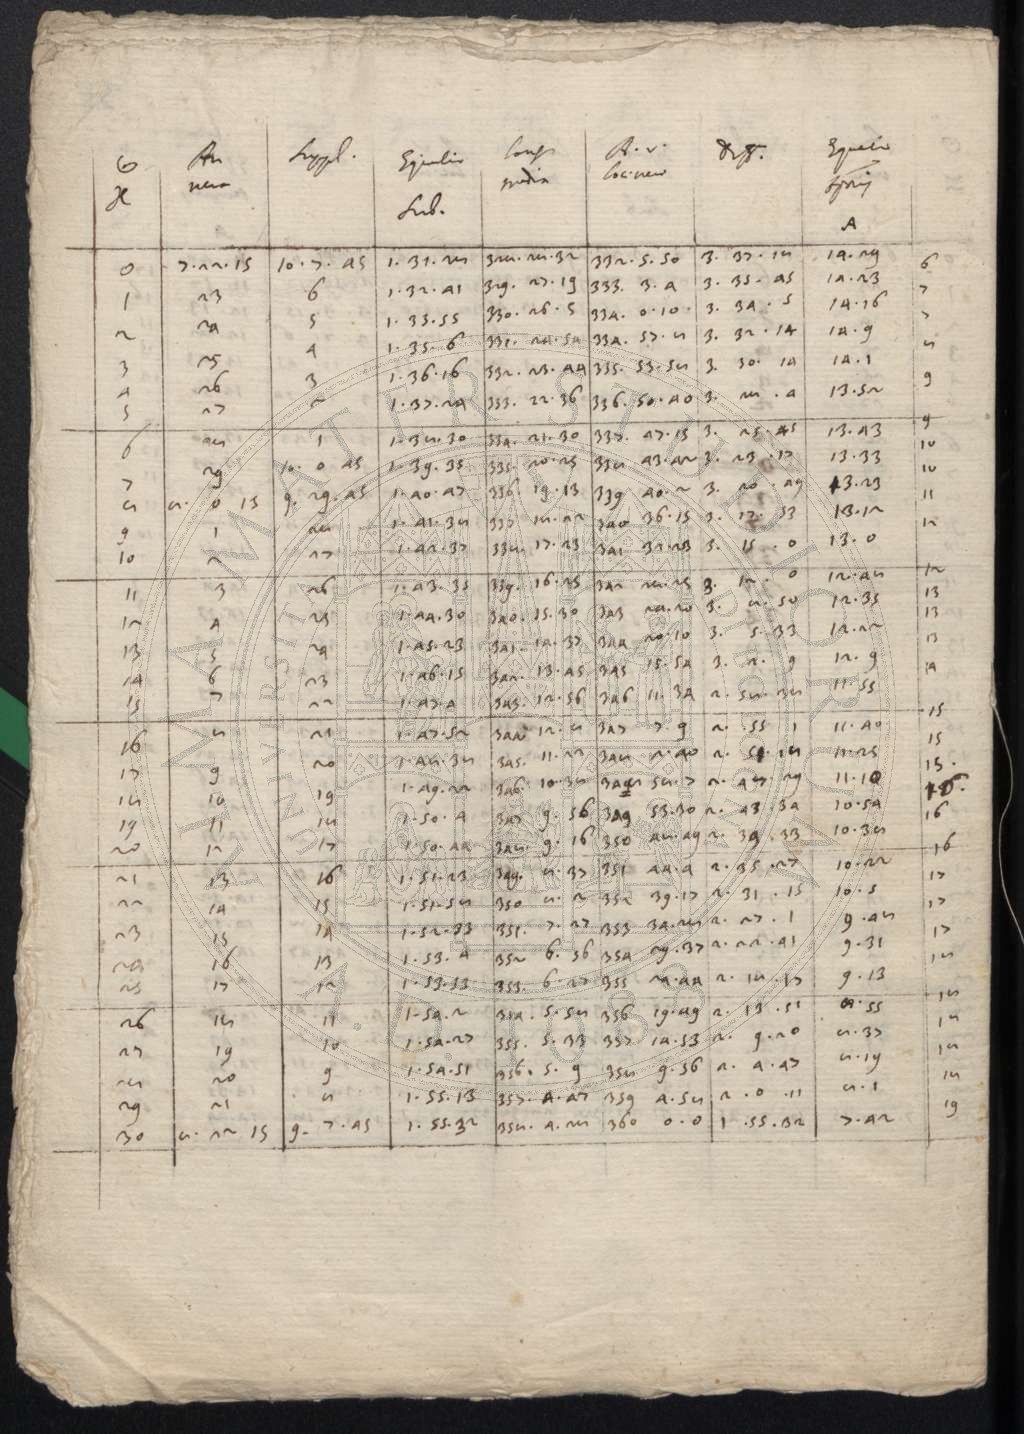 ♋ An Suppl. Equatio long. A. v. Diff. Equatio
vera media loc. vero
Sub. A
0 7.22.15 10.7.45 1.31.28 328.28.32 332.5.50 3.37.18 14.29 6
1 23 6 1.32.41 329.27.19 333.3.4 3.35.45 14.23 7
2 24 5 1.33.55 330.26.5 334.0.10 3.34.5 14.16 7
3 25 4 1.35.6 331.24.54 334.57.8 3.32.14 14.9 8
4 26 3 1.36.16 332.23.44 335.53.58 3.30.14 14.1 9
5 27 2 1.37.24 333.22.36 336.50.40 3.28.4 13.52 9
6 28 1 1.38.30 334.21.30 337.47.15 3.25.45 13.43 10
7 29 10.0.45 1.39.35 335.20.25 338.43.42 3.23.17 13.33 10
8 8.0.15 9.29.45 1.40.47 336.19.13 339.40.2 3.20.49 13.23 11
9 1 28 1.41.38 337.18.22 340.36.15 3.17.53 13.12 12
10 2 27 1.42.37 338.17.23 341.32.23 3.15.0 13.0 12
11 3 26 1.43.35 339.16.25 342.28.25 3.12.0 12.48 13
12 4 25 1.44.30 340.15.30 343.24.20 3.8.50 12.35 13
13 5 24 1.45.23 341.14.37 344.20.10 3.5.33 12.22 13
14 6 23 1.46.15 342.13.45 345.15.54 3.2.9 12.9 14
15 7 22 1.47.4 343.12.56 346.11.34 2.58.38 11.55 15
16 8 21 1.47.52 344.12.8 347.7.9 2.55.1 11.40 15
17 9 20 1.48.38 345.11.22 348.2.40 2.51.18 11.25 15.
18 10 19 1.49.22 346.10.38 348.58.7 2.47.29 11.10 16.
19 11 18 1.50.4 347.9.56 349.53.30 2.43.34 10.54 16
20 12 17 1.50.44 348.9.16 350.48.49 2.39.33 10.38 16
21 13 16 1.51.23 349.8.37 351.44.4 2.35.27 10.22 17
22 14 15 1.51.58 350.8.2 352.39.17 2.31.15 10.5 17
23 15 14 1.52.33 351.7.27 353.34.28 2.27.1 9.48 17
24 16 13 1.53.4 352.6.56 354.29.37 2.22.41 9.31 18
25 17 12 1.53.33 353.6.27 355.24.44 2.18.17 9.13 18
26 18 11 1.54.2 354.5.58 356.19.49 2.13.51 8.55 18
27 19 10 1.54.27 355.5.33 357.14.53 2.9.20 8.37 18
28 20 9 1.54.51 356.5.9 358.9.56 2.4.47 8.19 18
29 21 8 1.55.13 357.4.47 359.4.58 2.0.11 8.1 19
30 8.22.15 9.7.45 1.55.32 358.4.28 360.0.0 1.55.32 7.42